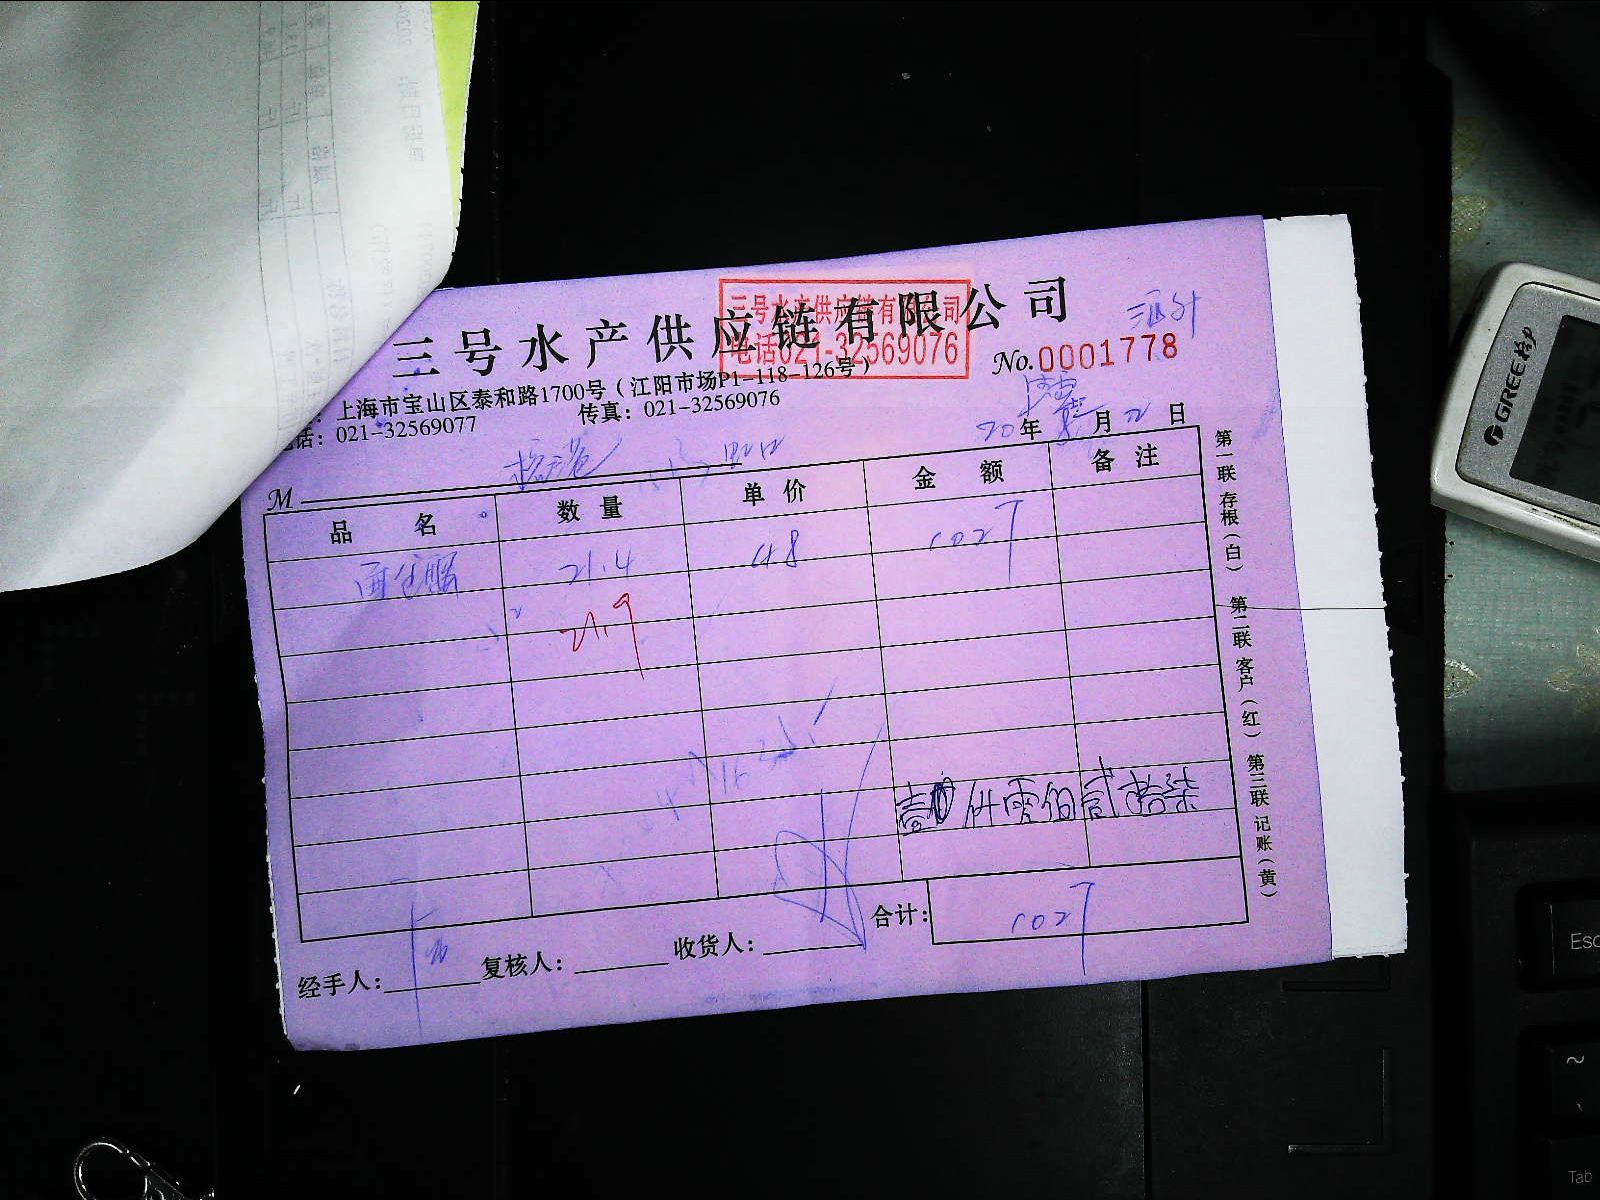 三号水产供应链有限公司
三号水产供应链有限公司
电话021-32569076
No.0001778
上海市宝山区泰和路1700号(江阳市场P1-118-126号)
话:021-32569077 传真:021-32569076
20年 月 日
M
品名 数量 单价 金额 备注
21.4 48 1027
21.9
壹仟零佰贰拾柒
合计: 1027
经手人: 复核人: 收货人:
第一联 存根(白) 第二联 客户(红) 第三联 记账(黄)
GREE格力
Esc
~
Tab